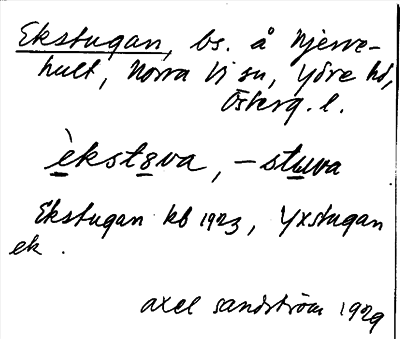 Ekstugan, bs. å Njerve-
hult, Norra Vi sn, Ydre hd,
Österg. l.
èkstova, –stuva
Ekstugan kb 1923, Yxstugan
ek.
Axel Sandström 1929